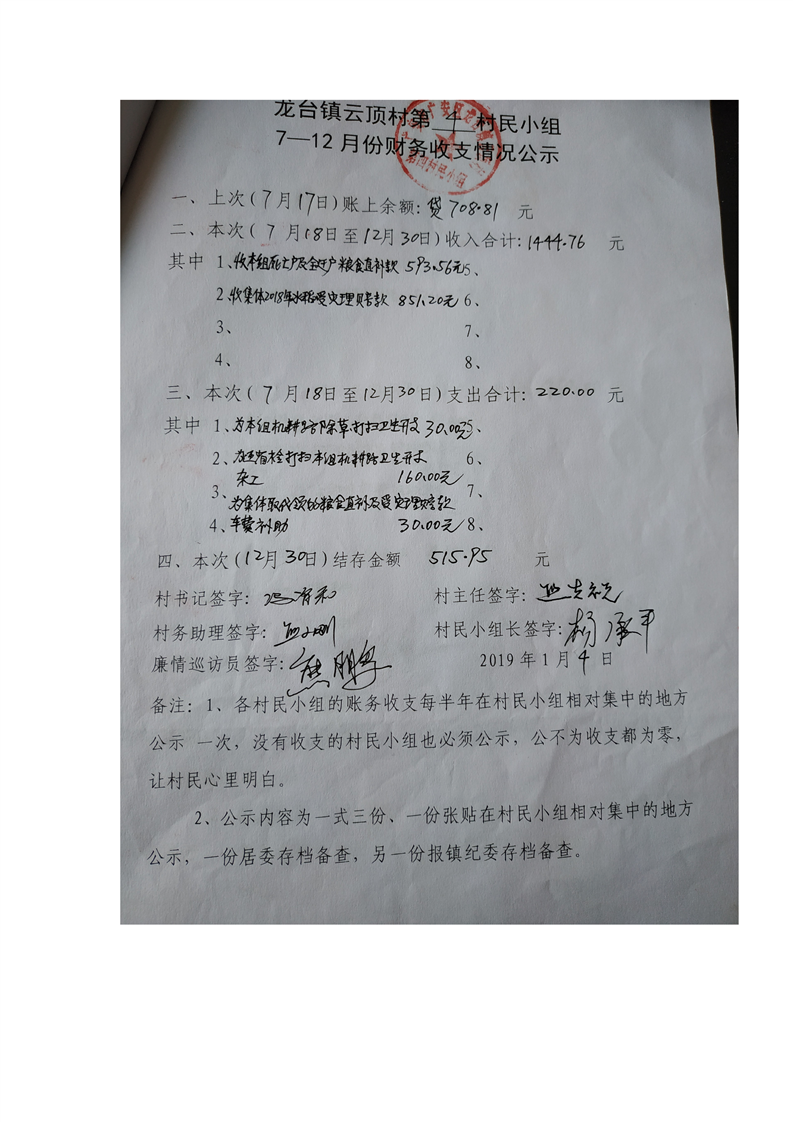 龙台镇云顶村第 4 村民小组
7—12月份财务收支情况公示
一、上次(7月17日)账上余额:贷708.81 元
二、本次(7月18日至12月30日)收入合计:1444.76 元
其中 1、收本组死亡户及全迁户粮食直补款 593.56元 5、
2、收集体2018年水稻受灾理赔款 851.20元 6、
3、 7、
4、 8、
三、本次(7月18日至12月30日)支出合计:220.00 元
其中 1、为本组机耕路除草打扫卫生开支 30.00元 5、
2、为迎省检打扫本组机耕路卫生开支 6、
杂工 160.00元
3、 7、
为集体取代领的粮食直补及受灾理赔款
4、车费补助 30.00元 8、
四、本次(12月30日)结存金额 515.95 元
村书记签字: 村主任签字:
村务助理签字: 村民小组长签字:杨承平
廉情巡访员签字:熊鹏
2019年1月4日
备注:1、各村民小组的账务收支每半年在村民小组相对集中的地方
公示 一次,没有收支的村民小组也必须公示,公不为收支都为零,
让村民心里明白。
2、公示内容为一式三份、一份张贴在村民小组相对集中的地方
公示,一份居委存档备查,另一份报镇纪委存档备查。